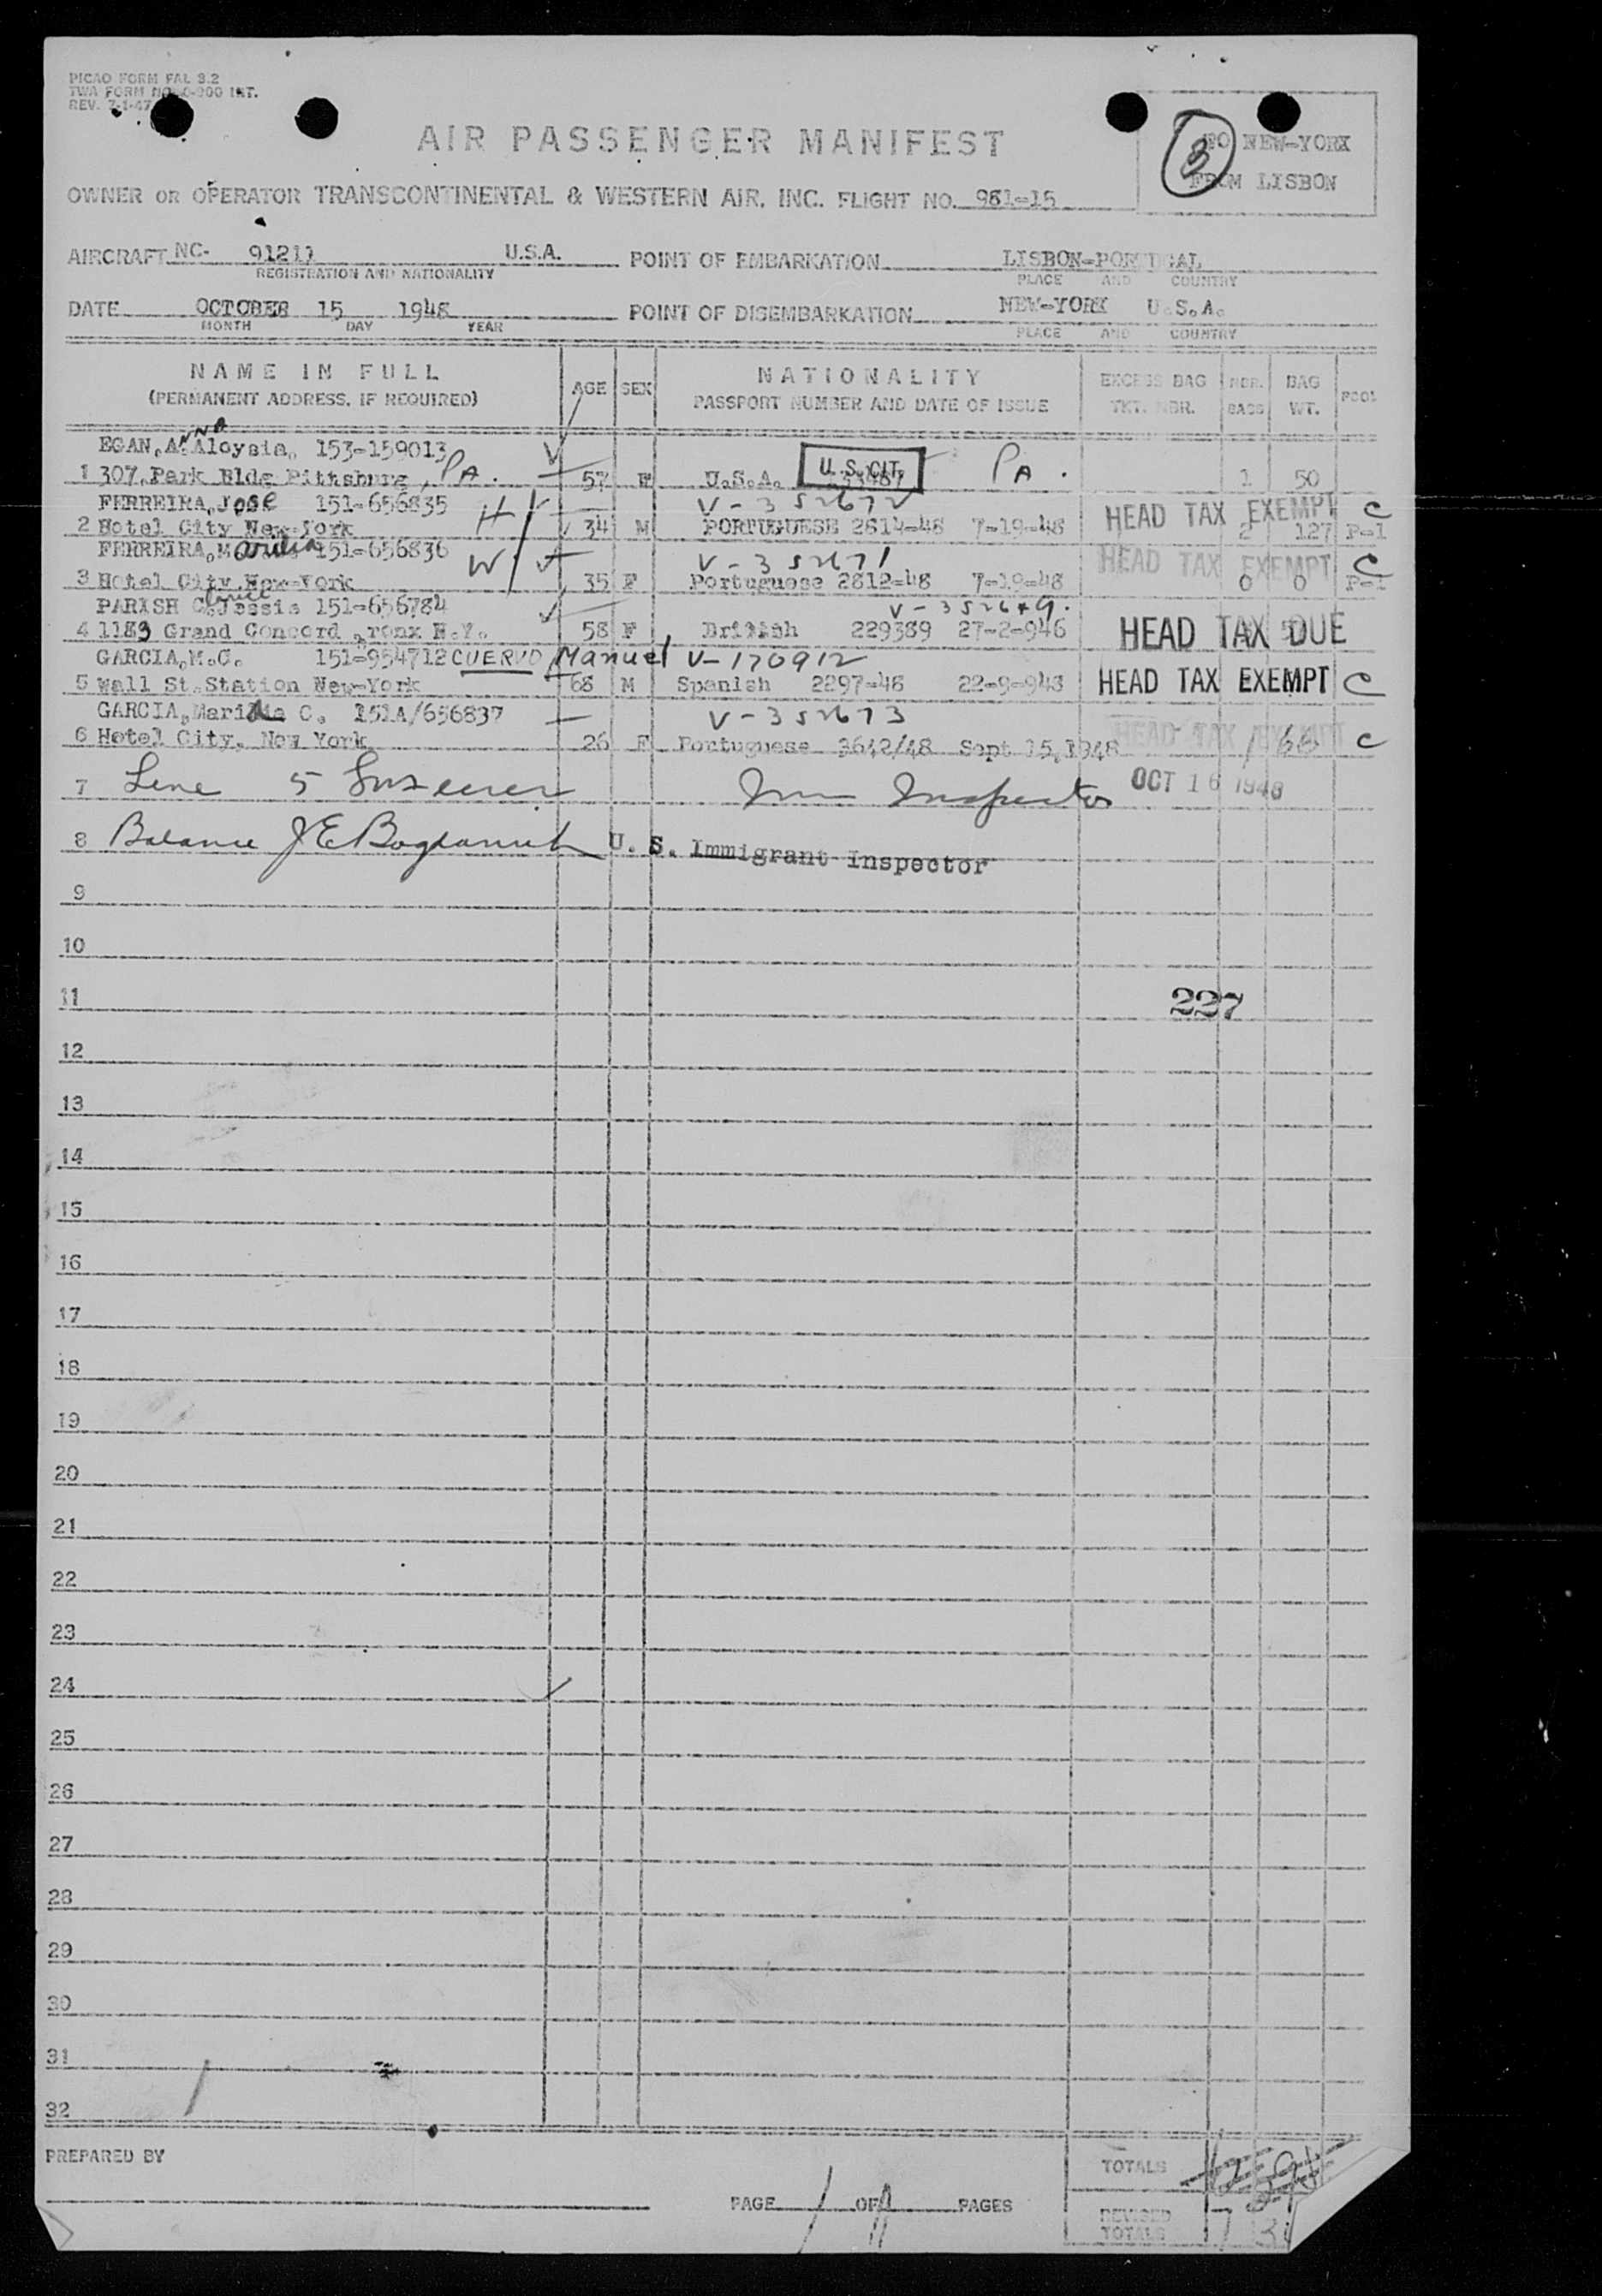 PICAO FORM FAL 3.2
TWA FORM NO. 0-200 INT.
REV. 7-1-47
AIR PASSENGER MANIFEST
TO NEW-YORK
FROM LISBON
OWNER OR OPERATOR TRANSCONTINENTAL & WESTERN AIR, INC. FLIGHT NO. 981-15
AIRCRAFT NC- 91211 U.S.A. POINT OF EMBARKATION LISBON-PORTUGAL
REGISTRATION AND NATIONALITY PLACE AND COUNTRY
DATE OCTOBER 15 1948 POINT OF DISEMBARKATION NEW-YORK U.S.A.
MONTH DAY YEAR PLACE AND COUNTRY
NAME IN FULL AGE SEX NATIONALITY EXCESS BAG NBR. BAG POOL
(PERMANENT ADDRESS, IF REQUIRED) PASSPORT NUMBER AND DATE OF ISSUE TKT. NBR. BAGS WT.
EGAN, ANNA Aloysia. 153-159013
1 307 Park Bldg Pittsburg, PA. 57 F U.S.A. U.S. CIT. PA. 1 50
FERREIRA, Jose 151-656835 H V-352672 HEAD TAX EXEMPT C
2 Hotel City New-York 34 M PORTUGUESE 2814-48 7-19-48 2 127 P-1
FERREIRA, Marilia 151-656836 W V-352671 HEAD TAX EXEMPT C
3 Hotel City New-York 35 F Portuguese 2812-48 7-19-48 0 0 P-1
PARISH C. Jessie 151-656784 V-352649.
4 1183 Grand Concord ronx N.Y. 58 F British 229389 27-2-946 HEAD TAX DUE
GARCIA, M.C. 151-954712 CUERVO, Manuel V-170912
5 Wall St. Station New-York 68 M Spanish 2297-48 22-9-948 HEAD TAX EXEMPT C
GARCIA, C. 151A/656837 V-352673
6 Hotel City, New York 26 F Portuguese 3642/48 Sept 15, 1948 HEAD TAX EXEMPT 1 66 C
7 Line 5 Imm Inspector OCT 16 1948
8 Balance J E U. S. Immigrant Inspector
9
10
11 227
12
13
14
15
16
17
18
19
20
21
22
23
24
25
26
27
28
29
30
31
32
PREPARED BY TOTALS
PAGE 1 OF PAGES
REVISED
TOTALS 7